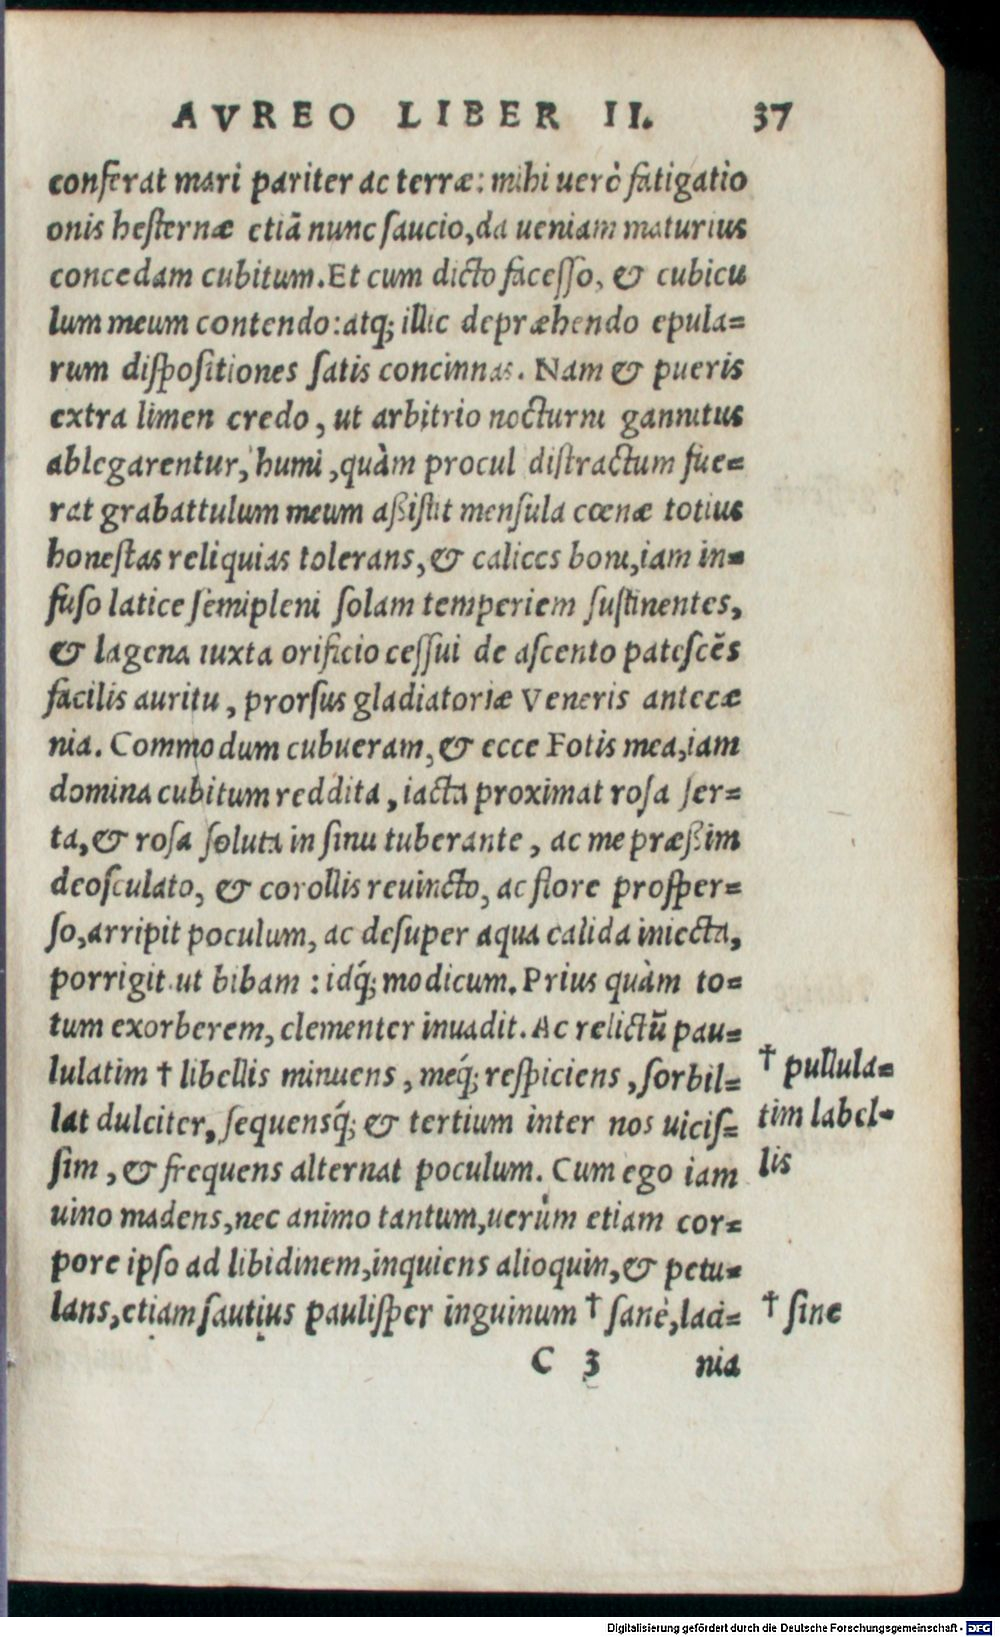 AVREO LIBER II. 37
conferat mari pariter ac terræ: mihi uerò fatigatio
onis hesternæ etiã nunc saucio, da ueniam maturius
concedam cubitum. Et cum dicto facesso, & cubicu
lum meum contendo: atq; illic depræhendo epula=
rum dispositiones satis concinnas. Nam & pueris
extra limen credo, ut arbitrio nocturni gannitus
ablegarentur, humi, quàm procul distractum fue=
rat grabattulum meum aßistit mensula cœnæ totius
honestas reliquias tolerans, & calices boni, iam in=
fuso latice semipleni solam temperiem sustinentes,
& lagena iuxta orificio cessui de ascento patescẽs
facilis auritu, prorsus gladiatoriæ Veneris antecæ
nia. Commodum cubueram, & ecce Fotis mea, iam
domina cubitum reddita, iacta proximat rosa ser=
ta, & rosa soluta in sinu tuberante, ac me præßim
deosculato, & corollis reuincto, ac flore prosper=
so, arripit poculum, ac desuper aqua calida iniecta,
porrigit ut bibam: idq́; modicum. Prius quàm to=
tum exorberem, clementer inuadit. Ac relictũ pau=
lulatim † libellis minuens, meq́; respiciens, sorbil=
lat dulciter, sequensq́; & tertium inter nos uicis=
sim, & frequens alternat poculum. Cum ego iam
uino madens, nec animo tantum, uerùm etiam cor=
pore ipso ad libidinem, inquiens alioquin, & petu=
lans, etiam sautius paulisper inguinum † sanè, laci=
† pullula=
tim label=
lis
† sine
C 3 nia
Digitalisierung gefördert durch die Deutsche Forschungsgemeinschaft - DFG